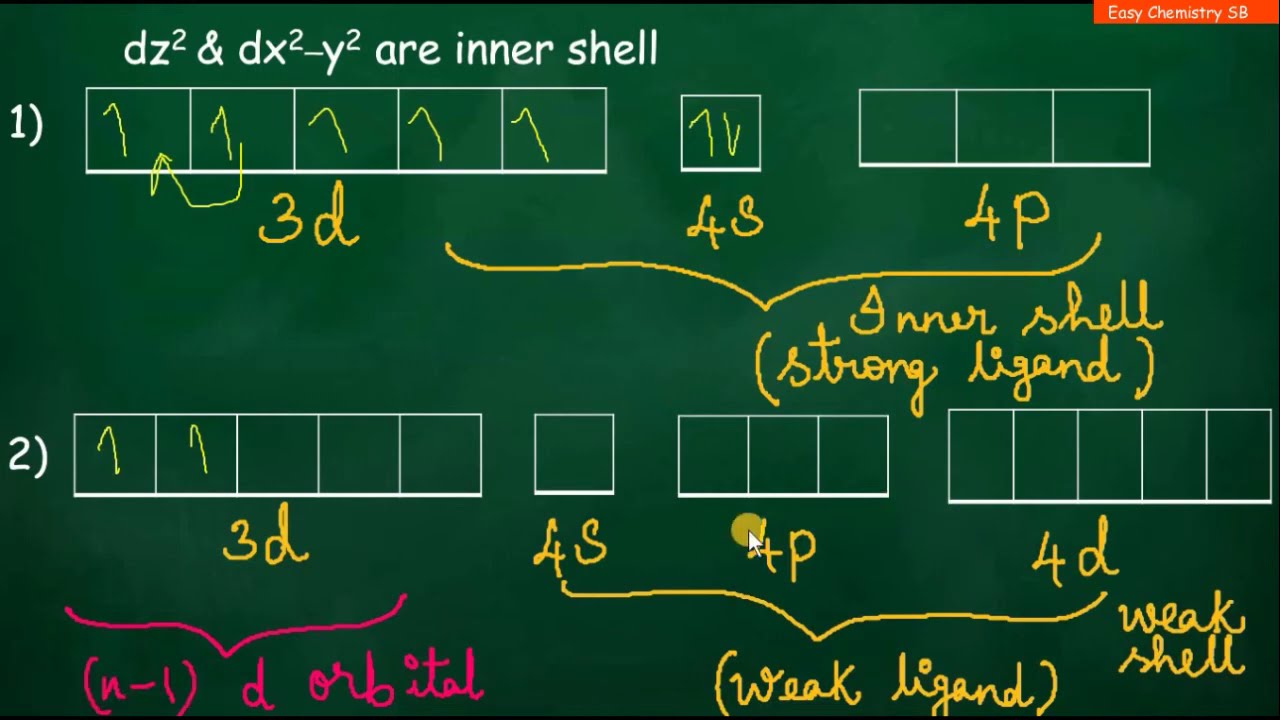 Easy Chemistry SB
dz² & dx²–y² are inner shell
1)
1 1 1 1 1 1L
3d 4s 4p
Inner shell
(strong ligand)
2)
1 1
3d 4s 4p 4d
weak
shell
(n-1) d orbital (weak ligand)